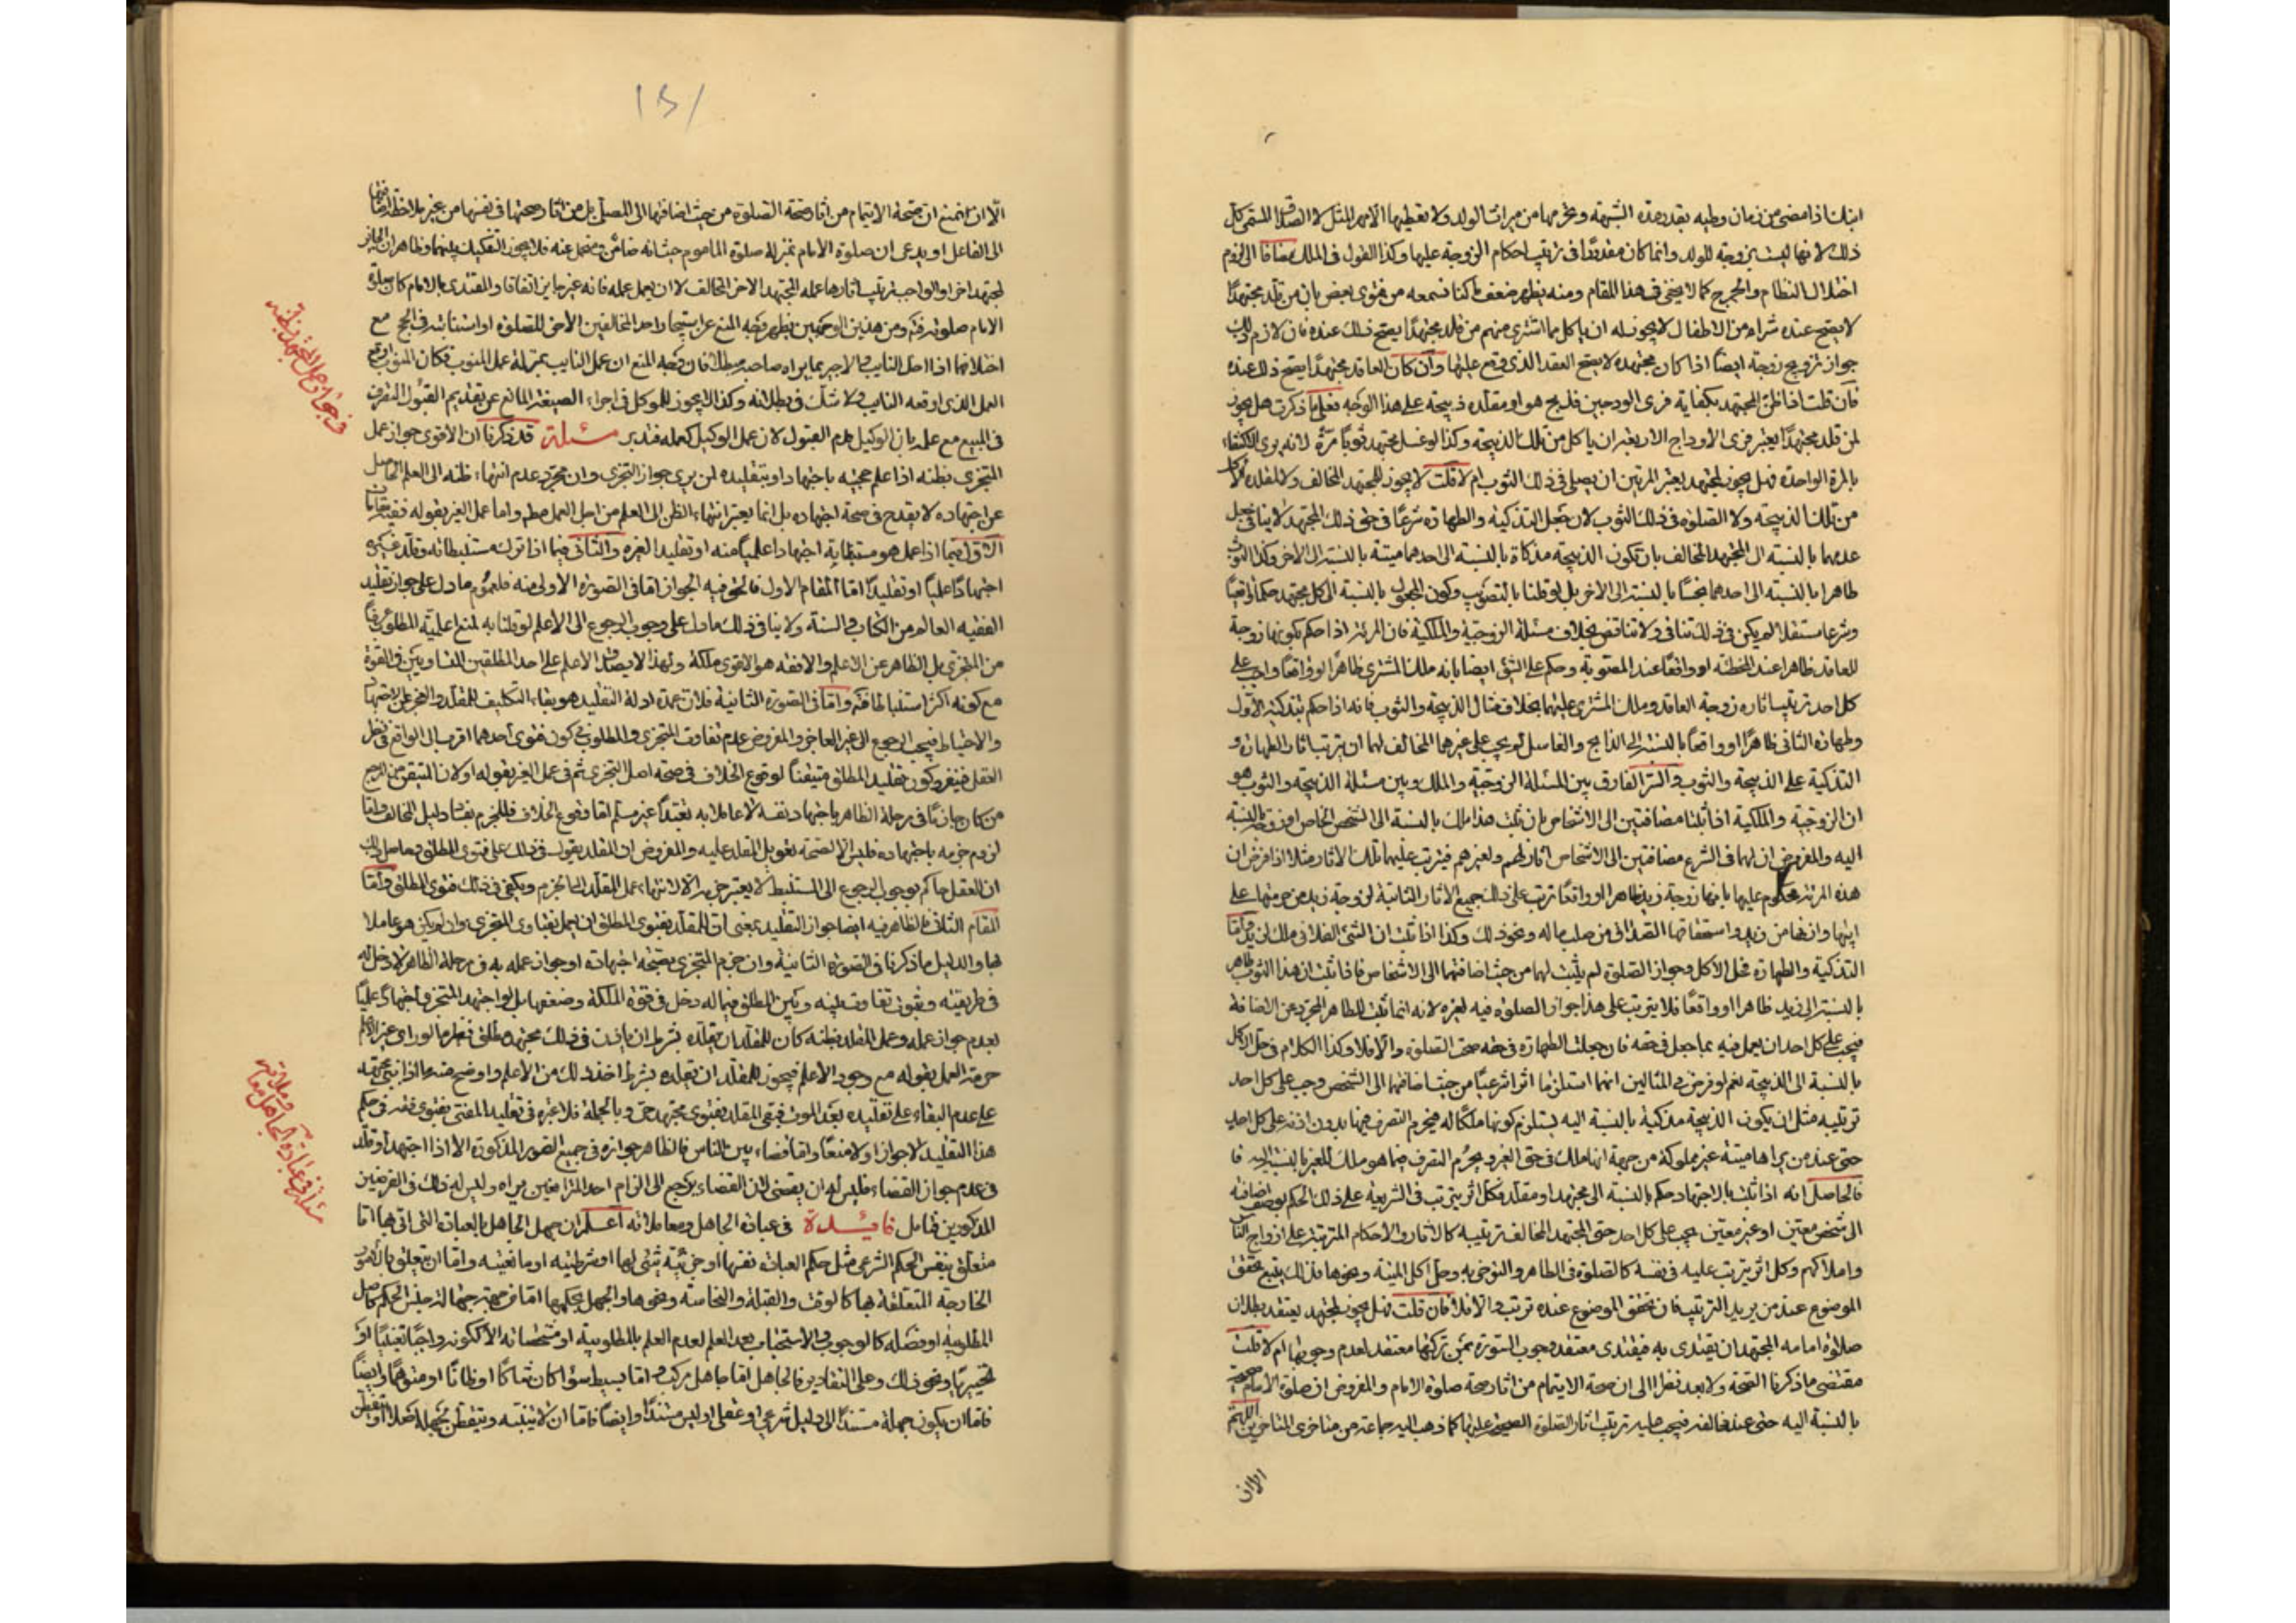 ذلك لانها ليست بزوجة للولد وانما كان معذورا فى ترتيب احكام الزوجة عليها وكذا القول فى الملك مضافا الى لزوم
اختلال النظام والحرج كما لا يخفى فى هذا المقام ومنه يظهر ضعف ما كنا نسمعه من فتوى بعض بان من قلد مجتهدا
لا يصح عنده شراء من الاطفال لا يجوز له ان ياكل مما اشترى منهم من قلد مجتهدا يصح ذلك عنده فان لازم ذلك
جواز تزويج زوجة ايضا اذا كان مجتهده لا يصح العقد الذى وقع عليها وان كان العاقد مجتهدا يصح ذلك عنده
فان قلت اذا ظن المجتهد بكفاية فرى الودجين فذبح هو او مقلده ذبيحة على هذا الوجه فعلى ما ذكرت هل يجوز
لمن قلد مجتهدا يعتبر فرى الاوداج الاربعة ان ياكل من تلك الذبيحة وكذا لو غسل مجتهد ثوبا مرة لانه يرى الاكتفاء
بالمرة الواحدة فهل يجوز لمجتهد يعتبر المرتين ان يصلى فى ذلك الثوب ام لا قلت لا يجوز للمجتهد المخالف ولا لمقلده الاكل
من تلك الذبيحة ولا الصلوة فى ذلك الثوب لان جعل التذكية والطهارة شرعا فى حق ذلك المجتهد لا ينافى جعل
عدمهما بالنسبة الى المجتهد المخالف بان تكون الذبيحة مذكاة بالنسبة الى احدهما ميتة بالنسبة الى الاخر وكذا الثوب
طاهرا بالنسبة الى احدهما نجسا بالنسبة الى الاخر بل لو قلنا بالتصويب وكون المجعول بالنسبة الى كل مجتهد حكما واقعيا
وشرعا مستقلا لم يكن فى ذلك تنافى ولا تناقض بخلاف مسئلة الزوجية والملكية فان المرئة اذا حكم بكونها زوجة
للعاقد ظاهرا عند المخطئة او واقعا عند المصوبة وحكم على الشئ ايضا بانه ملك المشترى ظاهرا او واقعا وجب على
كل احد ترتيب اثار زوجة العاقد وملك المشترى عليهما بخلاف مثال الذبيحة والثوب فانه اذا حكم بتذكية الاول
وطهارة الثانى ظاهرا او واقعا بالنسبة الى الذابح والغاسل لم يجب على غيرهما المخالف لهما ان يرتب اثار الطهارة و
التذكية على الذبيحة والثوب والسر الفارق بين المسئلة الزوجية والملك وبين مسئلة الذبيحة والثوب هو
ان الزوجية والملكية اذا ثبتا مضافتين الى الاشخاص بان ثبت هذا ملك بالنسبة الى الشخص الخاص او زوجة بالنسبة
اليه والمفروض ان لهما فى الشرع مضافتين الى الاشخاص اثار لهم ولغيرهم فيترتب عليهما تلك الاثار مثلا اذا فرض ان
هذه المرئة محكوم عليها بانها زوجة زيد ظاهرا او واقعا ترتب على ذلك جميع الاثار الثابتة لزوجة زيد من حرمتها على
ابنها وارثها من زيد واستحقاقها الصداق من صلب ماله ونحو ذلك وكذا اذا ثبت ان الشئ الفلانى ملك لزيد واما
التذكية والطهارة فحل الاكل وجواز الصلوة لم يثبت لهما من حيث اضافتهما الى الاشخاص فاذا ثبت ان هذا الثوب طاهر
بالنسبة الى زيد ظاهرا او واقعا فلا يترتب على هذا جواز الصلوة فيه لغيره لانه انما ثبت للطاهر المجرد عن اضافة
فيجب على كل احد ان يعمل فيه بما جعل فى حقه فان جعلت الطهارة فى حقه صحت الصلوة والا فلا وكذا الكلام فى حل الاكل
بالنسبة الى الذبيحة نعم لو فرض فى المثالين انهما استلزما اثرا شرعيا من حيث اضافتهما الى الشخص وجب على كل احد
ترتيبه مثل ان يكون الذبيحة مذكية بالنسبة اليه يستلزم كونها ملكا له فيحرم التصرف فيها بدون اذنه على كل احد
حتى عند من يراها ميتة غير مملوكة من جهة انها ملك فى حق الغير ويحرم التصرف فيما هو ملك للغير بالنسبة اليه
فالحاصل انه اذا ثبت بالاجتهاد حكم بالنسبة الى مجتهد او مقلد فكل اثر يترتب فى الشريعة على ذلك الحكم بوصف اضافته
الى شخص معين او غير معين يجب على كل احد حتى المجتهد المخالف ترتيبه كالاثار والاحكام المترتبة على ازواج الناس
واملاكهم وكل اثر يترتب عليه فى نفسه كالصلوة فى الطاهر والتوضى به وحل اكل الميتة ونحوها فذلك يتبع تحقق
الموضوع عند من يريد الترتيب فان تحقق الموضوع عنده ترتب والا فلا فان قلت فهل يجوز لمجتهد يعتقد بطلان
صلوة امامه المجتهد ان يقتدى به فيقتدى معتقد وجوب السورة بمن تركها معتقد لعدم وجوبها ام لا قلت
مقتضى ما ذكرنا الصحة ولا بعد نظرا الى ان صحة الايتمام من اثار صحة صلوة الامام والمفروض ان صلوة الامام صحيحة
بالنسبة اليه حتى عند مخالفه فيجب عليه ترتيب اثار الصلوة الصحيحة عليها كما ذهب اليه جماعة من متاخرى المتاخرين اللهم
الا ان
الا ان يمنع ان صحة الايتمام من اثار صحة الصلوة من حيث اضافتها الى المصلى بل من اثار صحتها فى نفسها من غير ملاحظة اضافتها
الى الفاعل او يدعى ان صلوة الامام بمنزلة صلوة الماموم حيث انه ضامن ومتحمل عنه فلا يجوز التفكيك بينهما وظاهر ان الجايز
لمجتهد اخر او الواجب ترتيب اثارها عمله المجتهد الاخر المخالف لا ان يعمل عمله فانه غير جايز اتفاقا والمقتدى بالامام كان صلوة
الامام صلوته ومن هذين الوجهين يظهر وجه المنع عن استيجار احد المخالفين الاخر للصلوة او استنابته فى الحج مع
اختلافهما اذا اخل النايب والاجير بما يراه صاحبه مبطلا فان وجه المنع ان عمل النايب بمنزلة عمل المنوب فكان المنوب اوقع
العمل الذى اوقعه النايب ولا شك فى بطلانه وكذا لا يجوز للموكل فى اجراء الصيغة المانع عن تقديم القبول التصرف
فى المبيع مع علمه بان الوكيل قدم القبول لان عمل الوكيل كعمله فتدبر مسئلة قد ذكرنا ان الاقوى جواز عمل
المتجزى بظنه اذا علم حجيته باجتهاد او بتقليده لمن يرى جواز التجزى وان مجرد عدم انتهاء ظنه الى العلم الحاصل
عن اجتهاده لا يقدح فى صحة اجتهاده بل انما يعتبر انتهاء الظن الى العلم من اجل العمل واما عمل الغير بقوله ففيه مقامان
الاول فيما اذا عمل هو مستنباته اجتهادا علميا منه او تقليدا لغيره والثانى فيما اذا ترك مستنبطاته وقلد غيره
اجتهادا علميا او تقليدا اما المقام الاول فالحق فيه الجواز اما فى الصورة الاولى منه فلعموم ما دل على جواز تقليد
الفقيه العالم من الكتاب والسنة ولا ينافى ذلك ما دل على وجوب الرجوع الى الاعلم لو قلنا به لمنع اعلمية المطلق عرفا
من المتجزى بل الظاهر عن الاعلم والافقه هو الاقوى ملكة ولهذا لا يصدق الاعلم على احد المطلقين المتساويين فى القوة
مع كونه اكثر استنباطا فتدبر واما فى الصورة الثانية فلان عمدة ادلة التقليد هو بقاء التكليف للمقلد والعجز عن الاجتهاد
والاحتياط فيجب الرجوع الى غير العاجز والمفروض عدم تفاوت المتجزى والمطلق فى كون فتوى احدهما اقرب الى الواقع فى نظر
العقل فينفرد كون تقليد المطلق متيقنا لوقوع الخلاف فى صحة اصل التجزى ثم فى عمل الغير بقوله او لان المتيقن من الرجوع
من كان جازما فى مرحلة الظاهر باجتهاد نفسه لا عاملا به تعبدا غير مسلم اما وقوع الخلاف فللجزم بفساد دليل المخالف واما
لزوم جزمه باجتهاده فليس الا لصحة تعويل المقلد عليه والمفروض ان المقلد يعول فى ذلك على فتوى المطلق وحاصل ذلك
ان العقل حاكم بوجوب الرجوع الى المستنبط لا يعتبر جزمه الا لانتهاء عمل المقلد الى الجزم ويكفى فى ذلك فتوى المطلق واما
المقام الثانى فالظاهر فيه ايضا جواز التقليد بمعنى ان للمقلد بفتوى المطلق ان يعمل بفتاوى المتجزى وان لم يكن هو عاملا
بها والدليل ما ذكرنا فى الصورة الثانية وان جزم المتجزى بصحة اجتهاده او جواز عمله به فى مرحلة الظاهر لا دخل له
فى طريقيته وثبوت تفاوت بينه وبين المطلق فيما له دخل فى قوة الملكة وضعفها بل لو اجتهد المتجزى اجتهادا علميا
بعدم جواز عمله وعمل المقلد بظنه كان للمقلد ان يقلده بشرط ان ياذن فى ذلك مجتهد مطلق نظير ما لو راى غير الاعلم
حرمة العمل بقوله مع وجود الاعلم فيجوز للمقلد ان يقلده بشرط اخذ ذلك من الاعلم واوضح منه ما اذا بنى مجتهده
على عدم البقاء على تقليده بعد الموت فبقى المقلد بفتوى مجتهد حى وبالجملة فلا عبرة فى تقليد المفتى بفتوى نفسه فى حكم
هذا التقليد لا جوازا ولا منعا واما قضاءه بين الناس فالظاهر جوازه فى جميع الصور المذكورة الا اذا اجتهد او قلد
فى عدم جواز القضاء فليس له ان يقضى لان القضاء يرجع الى الزام احد المترافعين بما يراه وليس له ذلك فى الفرضين
المذكورين فتامل فائدة فى عبادة الجاهل ومعاملاته اعلم ان جهل الجاهل بالعبادة التى اتى بها اما
متعلق بنفس الحكم الشرعى مثل حكم العبادة نفسها او جزئية شئ لها او شرطيته او مانعيته واما ان يتعلق بالامور
الخارجة المتعلقة بها كالوقت والقبلة والنجاسة ونحوها والجهل بحكمها اما من جهة جهالة جنس الحكم كاصل
المطلوبية او فصله كالوجوب والاستحباب بعد العلم لعدم العلم بالمطلوبية او مشخصاته الاخر ككونه واجبا تعيينيا او
تخييريا ونحو ذلك وعلى التقادير فالجاهل اما جاهل مركب واما بسيط سواء كان شاكا او ظانا او متوهما وايضا
فاما ان يكون جهله مستندا الى دليل شرعى او عقلى او ليس مستندا وايضا فاما ان لا يتنبه ويتفطن بجهله اصلا او يتفطن
فى جواز عمل المتجزى بظنه
مسئلة فى عبادة الجاهل ومعاملاته